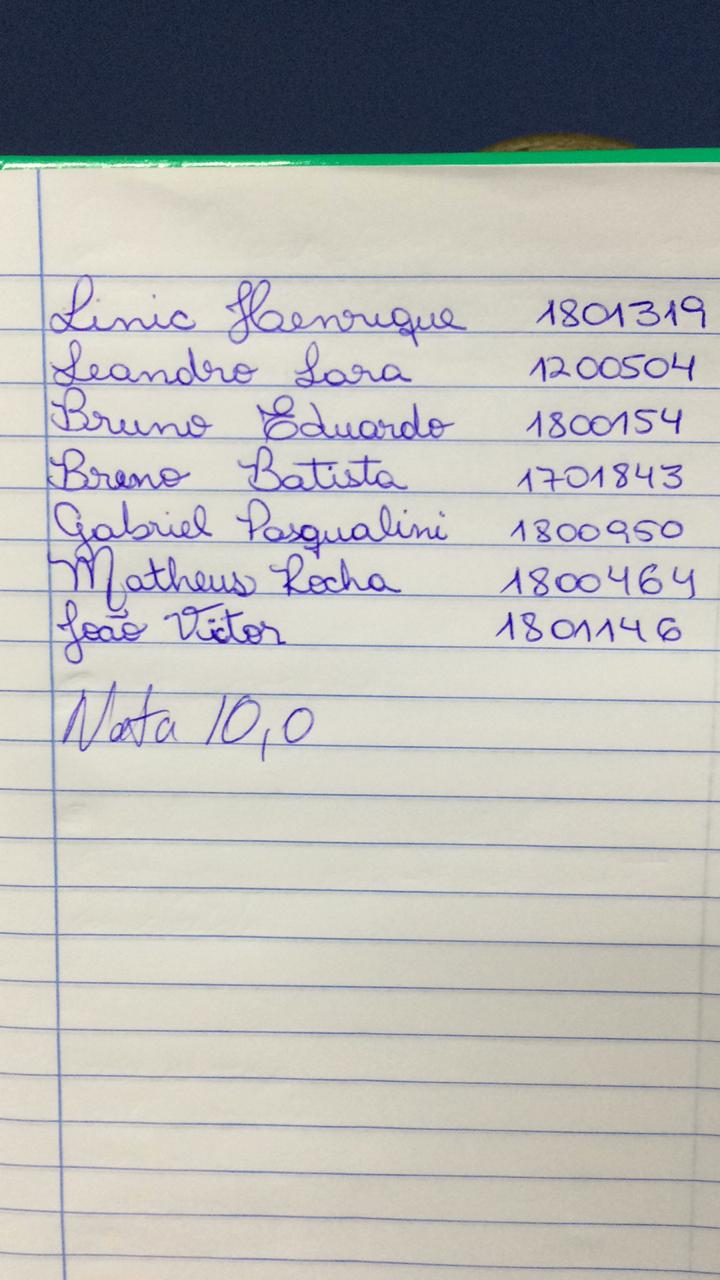 Linic Henrique 1801319
Leandro Lara 1200504
Bruno Eduardo 1800154
Breno Batista 1701843
Gabriel Pasqualini 1800950
Matheus Rocha 1800464
João Victor 1801146
Nota 10,0